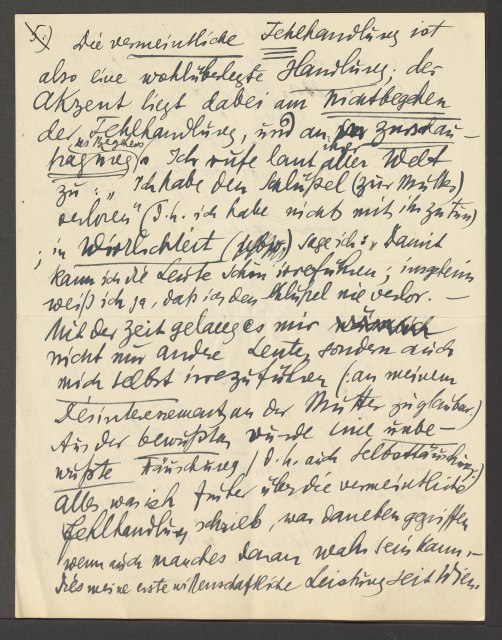 5.)
Die vermeintliche Fehlhandlung ist
also eine wohlüberlegte Handlung; der
Akzent liegt dabei am Nichtbegehen
der Fehlhandlung, und an ihrer zur Schau-
des Begehens
tragung. Ich rufe laut aller Welt
zu: „Ich habe den Schlüßel (zur Mutter)
verloren" (D.h. ich habe nichts mit ihr zu tun)
; in Wirklichkeit sage ich: „Damit
kann ich die Leute schön irreführen; insgeheim
weiß ich ja, daß ich den Schlüßel nie verlor. –
Mit der Zeit gelang es mir
nicht nur andere Leute, sondern auch
mich selbst irrezuführen (: an meinem
Desinteressement an der Mutter zu glauben.)
Aus der bewußten wurde eine unbe-
wußte Täuschung, d.h. auch Selbsttäuschung.)
Alles was ich früher über die vermeintliche
Fehlhandlung schrieb, war daneben gegriffen
wenn auch manches daran wahr sein kann. –
Dies meine erste wissenschaftliche Leistung seit Wien.